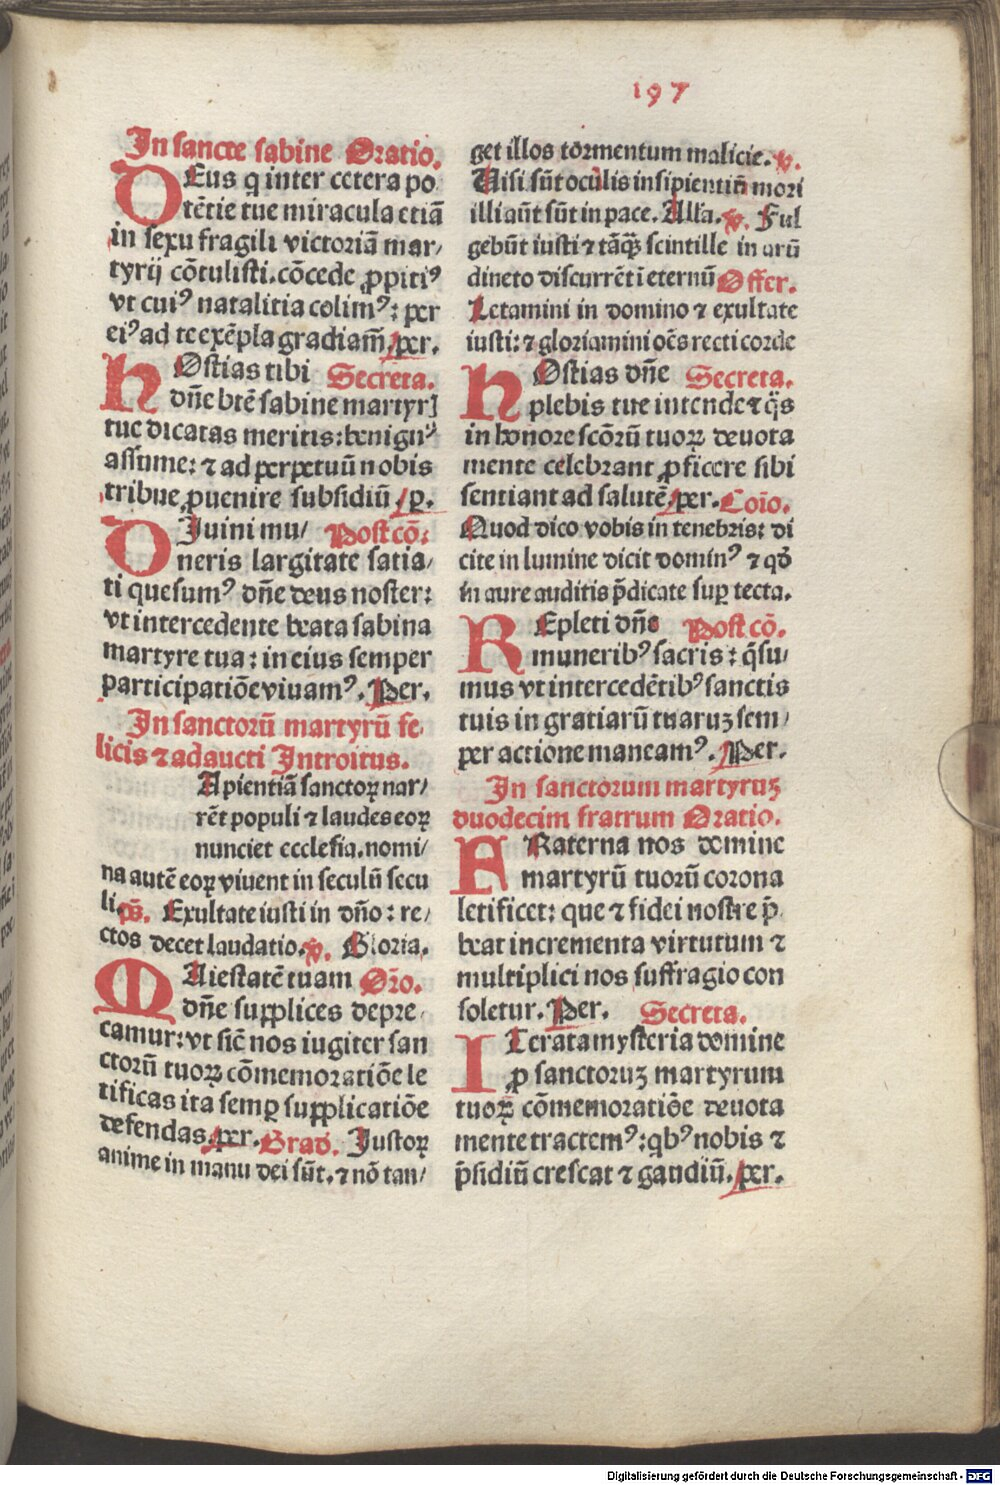 197
In sancte sabine Oratio.
DEus q̄ inter cetera po
tētie tue miracula etiā
in sexu fragili victoriā mar/
tyrij cōtulisti.cōcede ꝓpitiꝰ
vt cuiꝰ natalitia colimꝰ: per
eiꝰ ad te exēpla gradiam̄. per.
HOstias tibi Secreta.
dn̄e btē sabine martyrꝭ
tue dicatas meritis: benignꝰ
assume: ⁊ ad perpetuū nobis
tribue ꝓuenire subsidiū. p̲.
DJuini mu/ Postcō:
neris largitate satia/
ti quesumꝰ dn̄e deus noster:
vt intercedente beata sabina
martyre tua: in eius semper
participatiōe viuamꝰ. Per.
In sanctorū martyrū fe
licis ⁊ adaucti Introitus.
Apientiā sanctoꝝ nar/
rēt populi ⁊ laudes eoꝝ
nunciet ecclesia. nomi/
na autē eoꝝ viuent in seculū secu
li. ps̄. Exultate iusti in dn̄o: re/
ctos decet laudatio. v. Gloria.
MAiestatē tuam Orō.
dn̄e supplices depre
camur: vt sic̄ nos iugiter san
ctorū tuoꝝ cōmemoratiōe le
tificas ita semꝑ supplicatiōe
defendas. per. Grad. Justoꝝ
anime in manu dei sūt. ⁊ nō tan/
get illos tormentum malicie. v.
Uisi sūt oculis insipientiū mori
illi aūt sūt in pace. Alla. v. Ful
gebūt iusti ⁊ tāꝙ̄ scintille in arū
dineto discurrēt ī eternū Offer.
Letamini in domino ⁊ exultate
iusti: ⁊ gloriamini oēs recti corde
HOstias dn̄e Secreta.
plebis tue intende ⁊ q̄s
in honore scōrū tuoꝝ deuota
mente celebrant ꝓficere sibi
sentiant ad salutē. per. Coīo.
Quod dico vobis in tenebris: di
cite in lumine dicit dominꝰ ⁊ qđ
in aure auditis p̄dicate suꝑ tecta.
REpleti dn̄e Postcō.
muneribꝰ sacris: q̄su/
mus vt intercedētibꝰ sanctis
tuis in gratiarū tuaruꝫ sem/
per actione maneamꝰ. Per.
In sanctorum martyruꝫ
duodecim fratrum Oratio.
FRaterna nos domine
martyrū tuorū corona
letificet: que ⁊ fidei nostre p̄
beat incrementa virtutum ⁊
multiplici nos suffragio con
soletur. Per. Secreta.
ITerata mysteria domine
ꝓ sanctoruꝫ martyrum
tuoꝝ cōmemoratiōe deuota
mente tractemꝰ: qbꝰ nobis ⁊
p̄sidiū crescat ⁊ gaudiū. per.
Digitalisierung gefördert durch die Deutsche Forschungsgemeinschaft - DFG